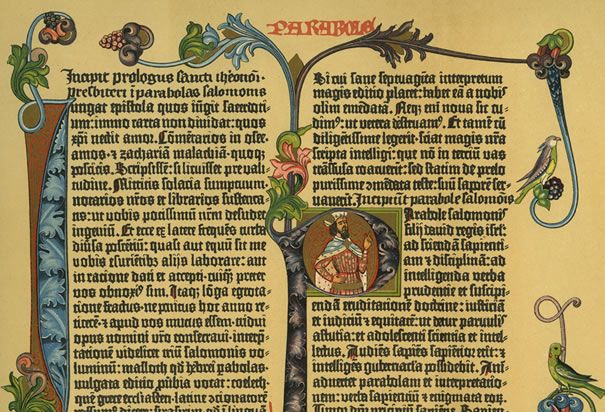 PARABOLE
Incipit prologus sancti iheronimi
presbiteri i parabolas salomonis
iungat epistola quos iugit sacerdoti-
um: immo carta non dividat: quos
xpi nectit amor. Cōmētarios in osee.
amos. et zachariā malachiā. quoq;
poscitis. Scripsissē: si licuisset pre vali-
tudine. Mittitis solacia sumptuum.
notarios nr̄os et librarios sustenta-
tis: ut vobis potissimū nr̄m desudet
ingeniū. Et ecce ex latere frequēs turba
diūsa poscētiū: quasi aut equū sit me
vobis esuriētibz aliis laborare: aut
in ratione dati et accepti. cuiq; preter
vos obnoxi9 sim. Itaq; lōga egrota-
tione fractus. ne penitus hoc anno re-
ticerē. et apud vos mutus essem. tridui
opus nomini vr̄o consecravi. interp-
tationē videlicet triū salomonis vo-
luminū: masloth qd hebrei pabolas.
vulgata editio pūbia vocat: coeleth.
que grece ecclīasten. latine ꝯcionatorē
Si cui sane septuagīta interpretum
magis editio placet: habet eā a nobis
olim emēdatā. Neq; eni nova sic cu-
dim9: ut vetera destruam9. Et tamē cū
diligētissime legerit. sciat magis nr̄a
scripta intelligi: que nō in terciū vas
trāsfusa coacuerīt: sed statim de prelo
purissime ꝯmēdata teste: suū saporē ser-
vaverīt. Incipiūt parabole salomōis
Parabole salomonis
filij david regis isrl':
ad sciendā sapienti-
am et disciplinā: ad
intelligenda verba
prudentie et suscipi-
endā eruditationē doctrine: iusticiā
et iudiciū et equitatē: ut detur parvulis
astutia: et adolescenti scientia et intel-
lectus. Audiēs sapiēs sapiētior erit: et
intelligēs gubernacla possidebit. Ani-
advertet parabolam et interpretatio-
nem: verba sapientiū et enigmata eoꝝ.